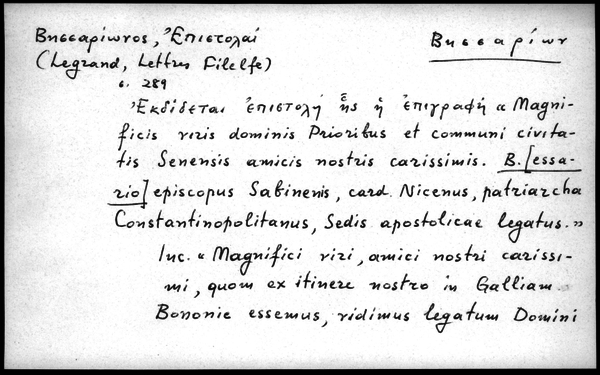 Βησσαρίωνος, Ἐπιστολαί
Βησσαρίων
(Legrand, Lettres Filelfe)
σ. 289
Ἐκδίδεται ἐπιστολή ἧς ἡ ἐπιγραφή « Magni-
ficis viris dominis Prioribus et communi civita-
tis Senensis amicis nostris carissimis. B.[essa-
rio] episcopus Sabinenis, card. Nicenus, patriarcha
Constantinopolitanus, Sedis apostolicae legatus.»
Inc. « Magnifici viri, amici nostri carissi-
mi, quom ex itinere nostro in Galliam
Bononie essemus, vidimus legatum Domini